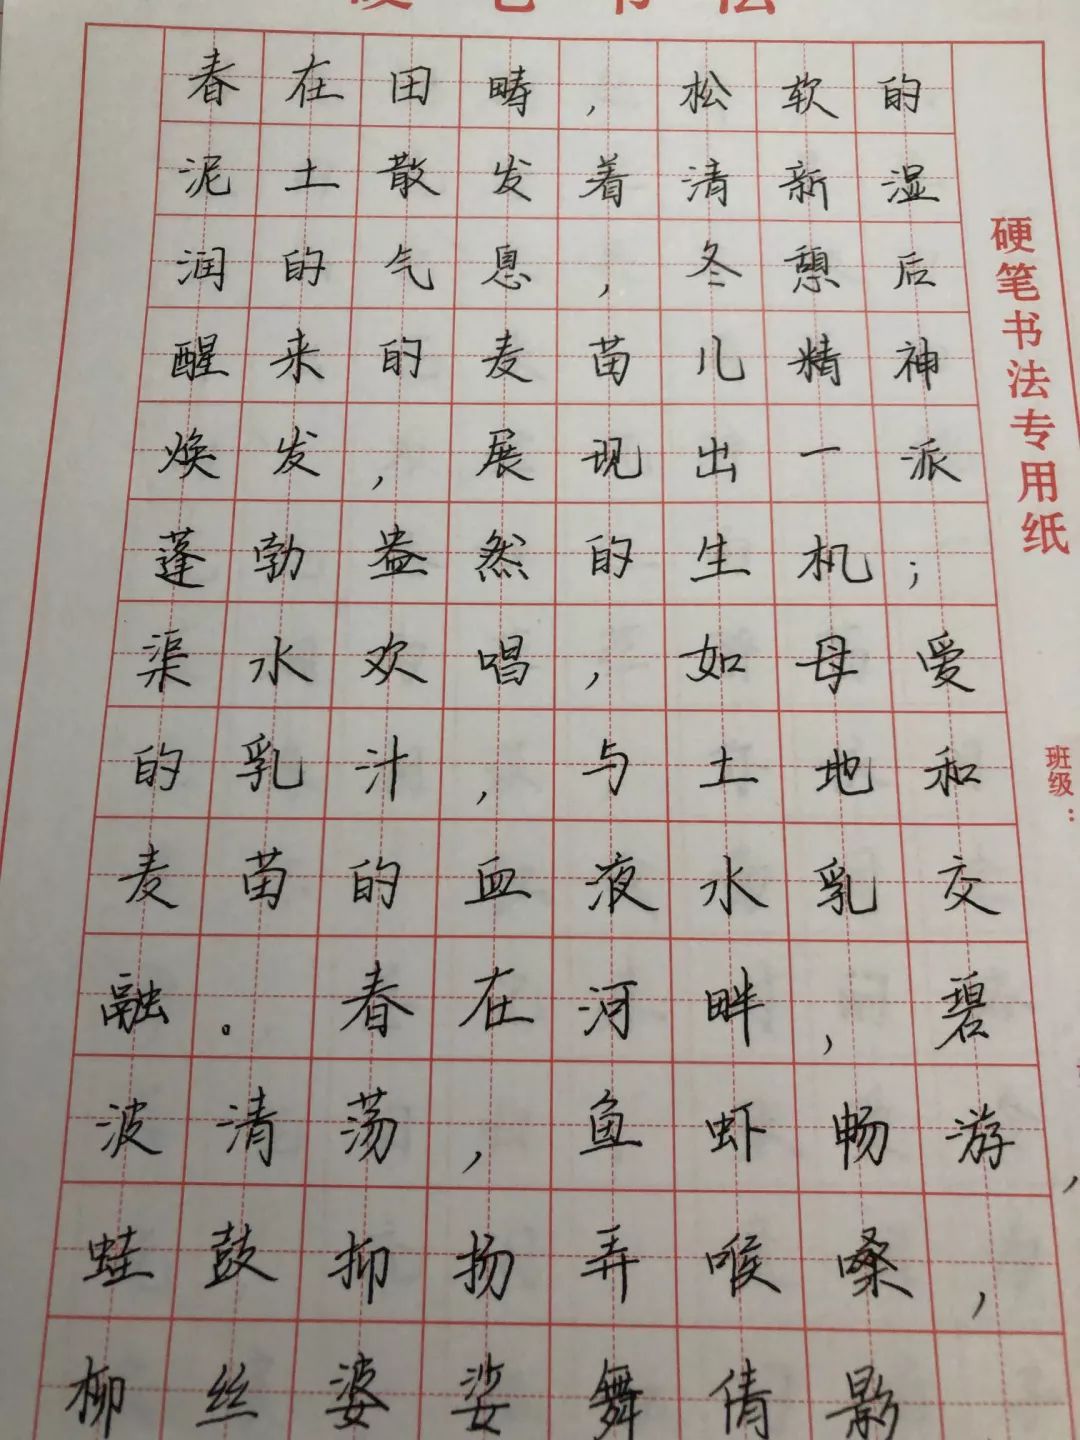 硬笔书法
春在田畴，松软的
泥土散发着清新湿
润的气息，冬憩后
醒来的麦苗儿精神
焕发，展现出一派
蓬勃盎然的生机；
渠水欢唱，如母爱
的乳汁，与土地和
麦苗的血液水乳交
融。春在河畔，碧
波清荡，鱼虾畅游，
蛙鼓抑扬弄喉嗓，
柳丝婆娑舞倩影
硬笔书法专用纸
班级：